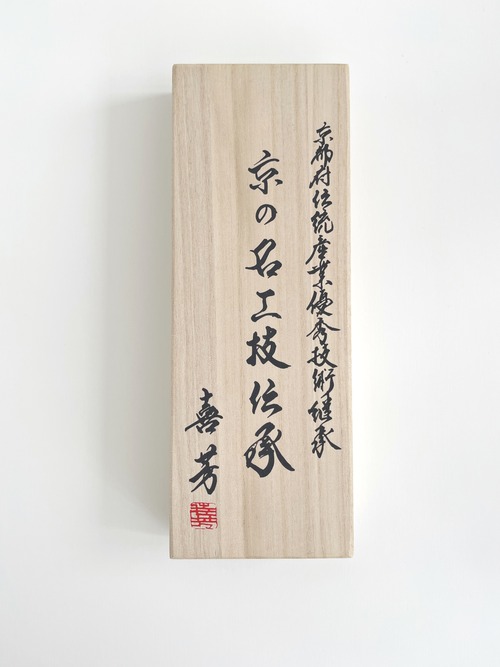 京都府伝統産業優秀技術継承
京の名工技伝承
喜芳